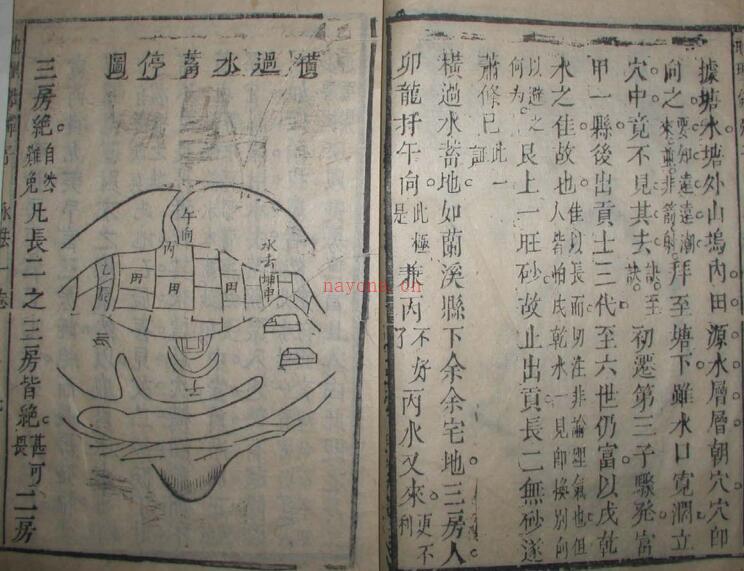 據塘水塘外山塢內田源水層層朝穴穴印
向之要知遠遠潮來非箭射拜至塘下雖水口寬濶立
穴中竟不見其去訣至訣初遷第三子驟發富
甲一縣後出貢士三代至六世仍富以戌乾
水之佳故也佳以長而切注非論理氣也但人皆怕戌乾水一見即換別向
以避之何為艮上一旺砂故止出貢長二無砂遂
蕭條巳此一証
橫過水蓄地如蘭溪縣下余余宅地三房人
卯龍扦午向此極是兼丙不好了丙水又來更不利
橫過水蓄停圖
午向
丙
水古坤申
田
田
田
乙辰
子
三房絕自然難免凡長二之三房皆絕甚可畏二房
nayona.cn